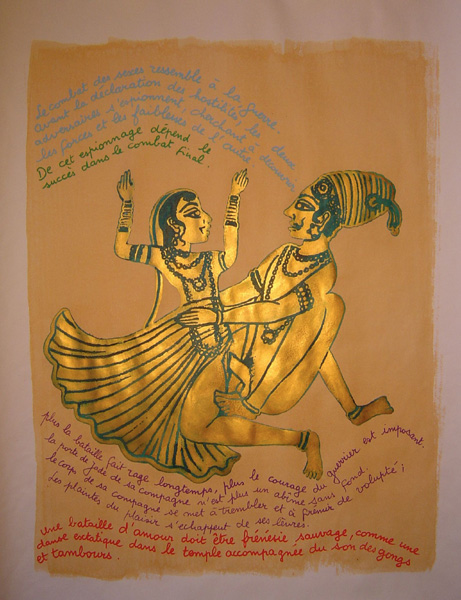 Le combat des sexes ressemble à la guerre.
Avant la déclaration des hostilités, les deux
adversaires s'espionnent, cherchant à découvrir
les forces et les faiblesses de l'autre.
De cet espionnage dépend le
succès dans le combat final.
plus la bataille fait rage longtemps, plus le courage du guerrier est imposant.
la porte de jade de sa compagne n'est plus un abîme sans fond.
le corps de sa compagne se met à trembler et à frémir de volupté ;
Les plaintes du plaisir s'échappent de ses lèvres.
Une bataille d'amour doit être frénésie sauvage, comme une
danse extatique dans le temple accompagnée du son des gongs
et tambours.